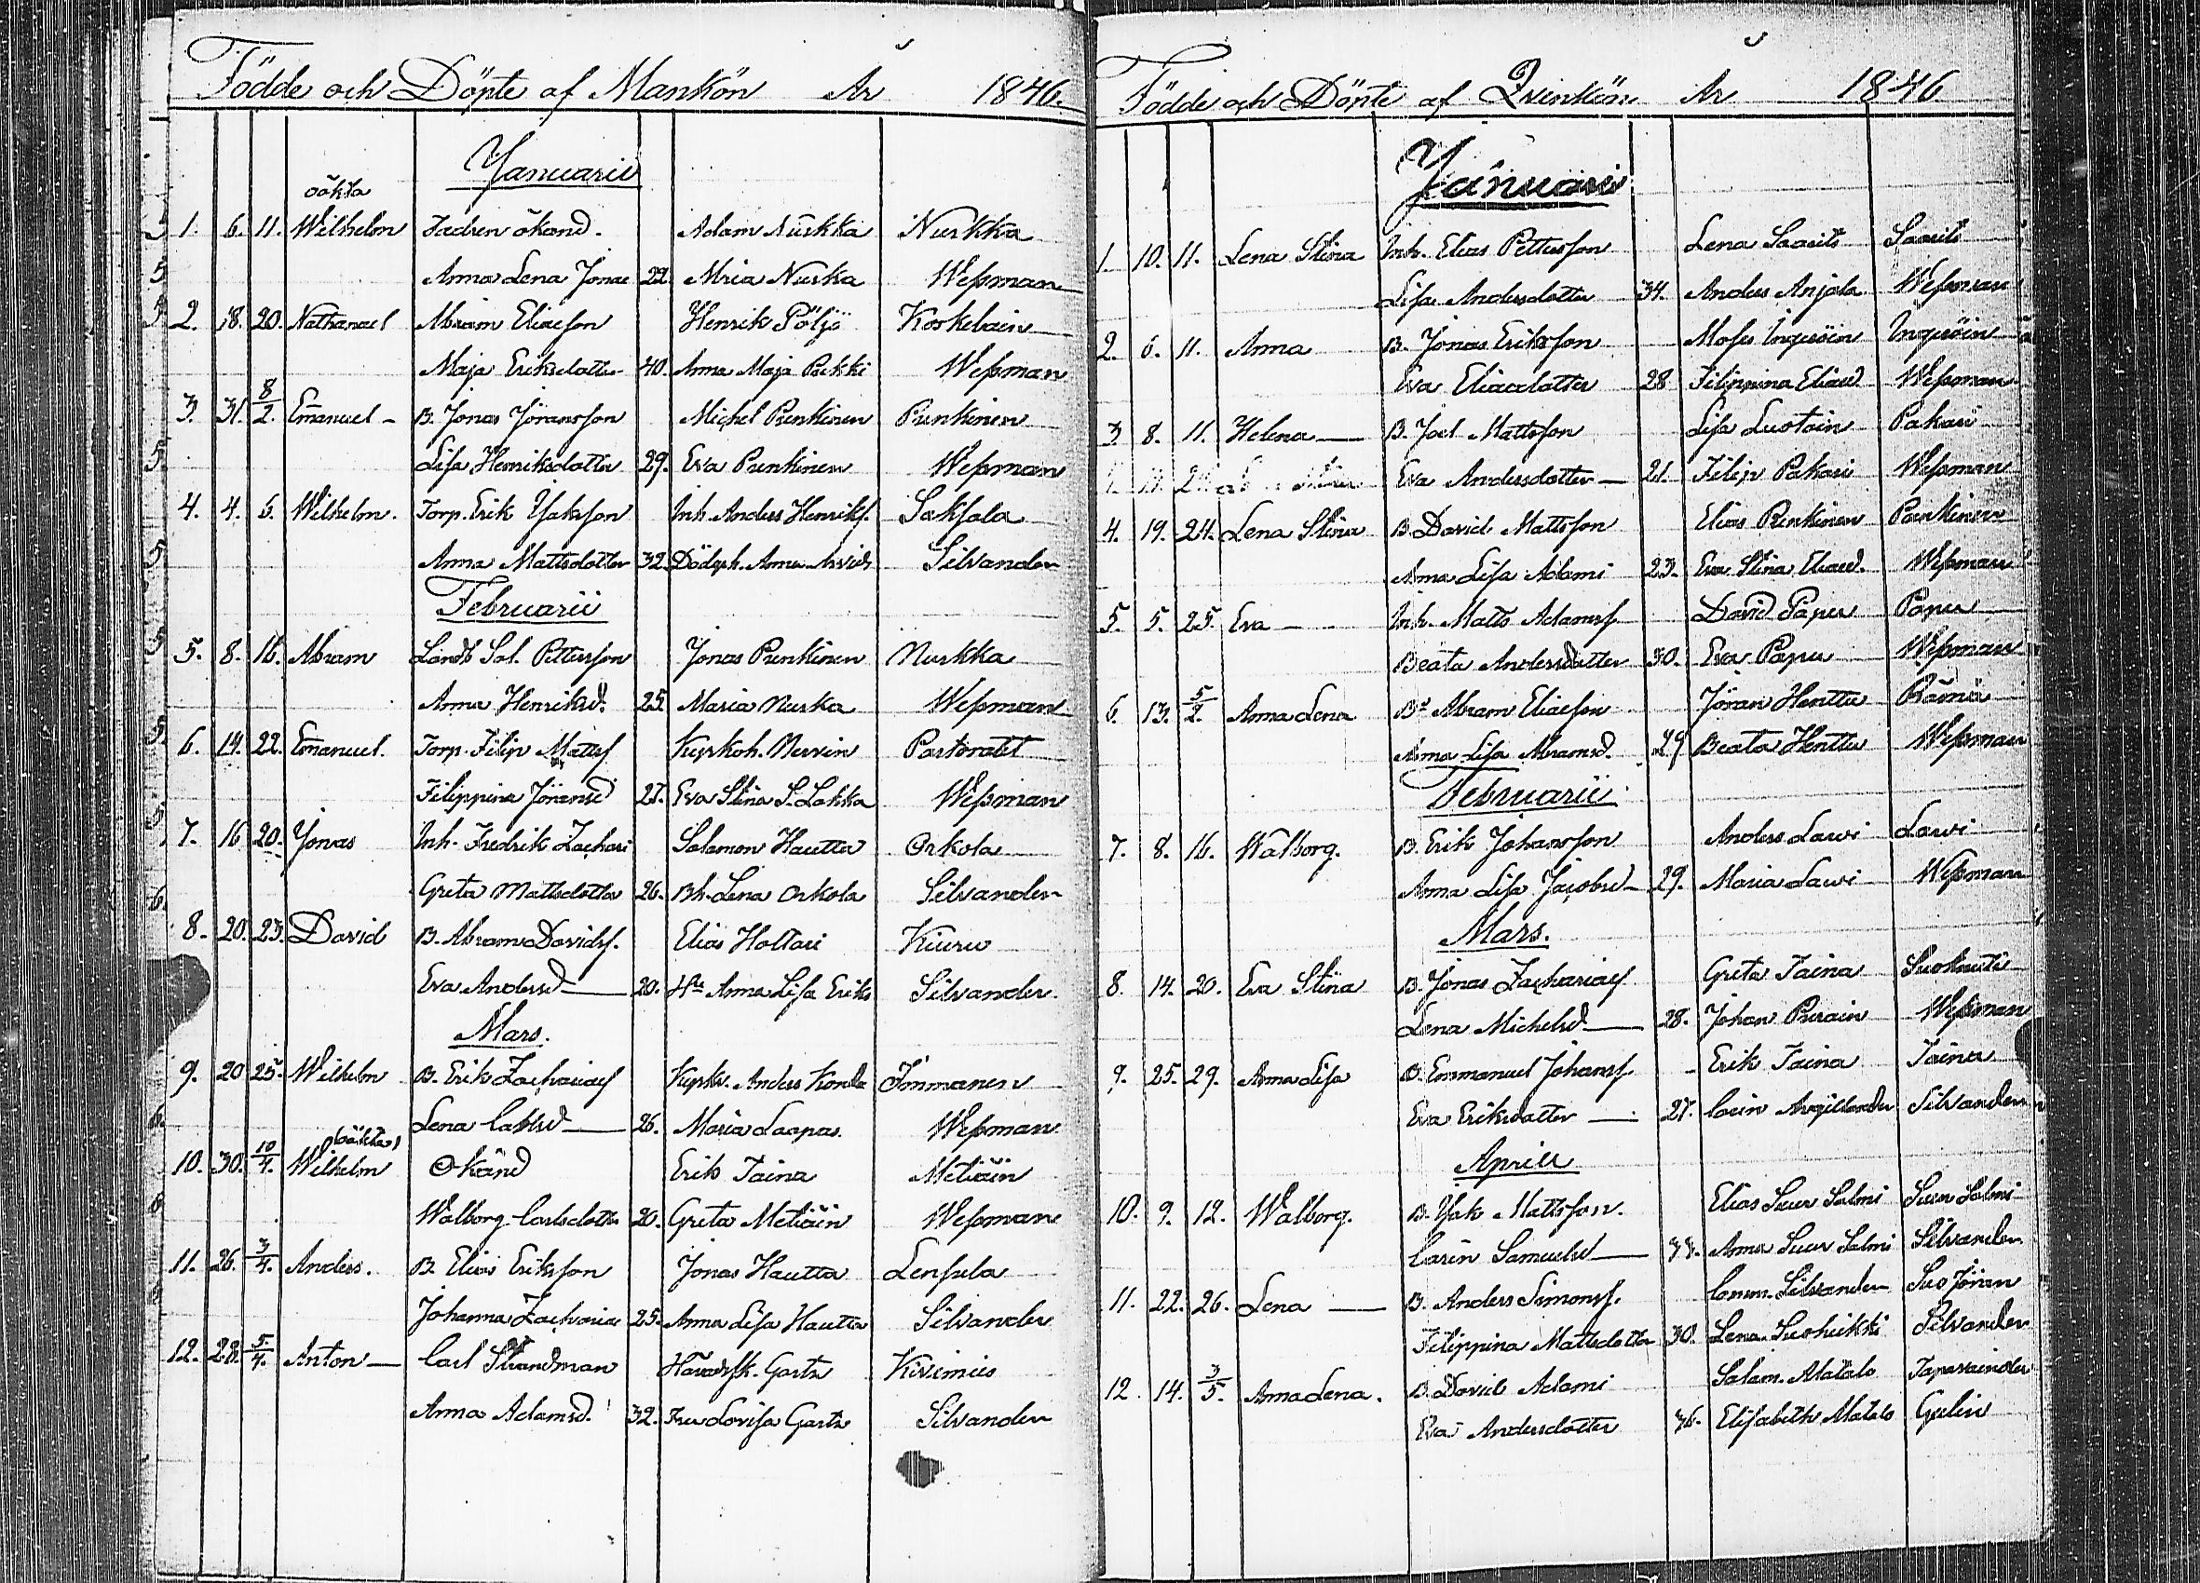 Födde och Döpte af Mankön År 1846.
Januarii
oäkta
1. 6. 11. Wilhelm Fadren okänd. Adam Nurkka Nurkka
Anna Lena Jonae 22. Mria Nurka Weßman
2. 18. 20. Nathanael Abram Eliaeson Henrik Pöljö Koskelain
Maja Eriksdotter 40. Anna Maja Pekki Weßman
3. 31. 8/2. Emanuel - B. Jonas Jöransson Michel Punkinen Punkinen
Lisa Henriksdotter 29. Eva Punkinen Weßman
4. 4. 6. Wilhelm. Torp. Erik Jakson Inh. Anders Henriks. Saksala
Anna Mattsdotter 32. Dödgr.h. Anna Silvander
Februarii
5. 8. 16. Abram Landb. Sal. Pettersson Jonas Punkinen Nurkka
Anna Henriksd. 25. Maria Nurka Weßman
6. 14. 22. Emanuel. Torp. Filip Mattss. Kyrkoh. Nervin Pastoratet
Filippina Jöransd 27. Eva Stina S. Lakka Weßman
7. 16 20. Jonas Inh. Fredrik Zachari Salomon Hautta Orkola
Greta Mattsdotter 26. Bh. Lena Orkola Silvander
8. 20. 23. David B. Abram Davids. Elias Holtari Kiuru
Eva Andersd 20. Hu Anna Lisa Eriks Silvander.
Mars.
9. 20 25. Wilhelm B. Erik Zacharias Kyrkv. Anders Konda Immanen
Lena Carlsd 26. Maria Laapas. Weßman
(oäkta)
10. 30. 10/4. Wilhelm Okänd Erik Taina Metiäin
Walborg Carlsdotter 20. Greta Metiäin Weßman
11. 26. 3/4. Anders. B. Elias Eriksson Jonas Hautta Lensula
Johanna Zachariae 25. Anna Lisa Hautta Silvander
12. 28. 5/4. Anton Carl Strandman Häradssk. Gartz Kivimies
Anna Adamsd. 32. Fru Lovisa Gartz Silvander
Födde och Döpte af Qvinkön År 1846
Januari
1. 10. 11. Lena Stina Inh. Elias Pettersson Lena Saarits Saarits
Lisa Andersdotter 34. Anders Anjala Weßman
2. 6. 11. Anna B. Jonas Eriksson Moses Ingeröin Ingeröin
Eva Eliaedotter 28 Filippina Eliaed Weßman
3 8. 11. Helena B. Joel Mattsson Lisa Lustain Pakari
Eva Andersdotter 21. Filip Pakari Weßman
4. 19. 24. Lena Stina B. David Mattsson Elias Punkinen Punkinen
Anna Lisa Adami 23. Eva Stina Eliaed. Weßman
5. 5. 25. Eva Inh. Matts Adamss. David Papu Papu
Beata Andersdotter 30. Eva Papu Weßman
6. 13. 5/2. Anna Lena Bd Abram Eliaeson Jöran Henttu Rämä
Anna Lisa Abramsd. 29 Beata Henttu Weßman
Februarii
7. 8. 16. Walborg. B. Erik Johansson Anders Lawi Lawi
Anna Lisa Jacobsd 29. Maria Lawi Weßman
Mars.
8. 14. 20. Eva Stina B. Jonas Zacharias. Greta Taina Suoknuti
Lena Michelsd 28. Johan Purain Weßman
9. 25. 29. Anna Lisa B. Emmanuel Johanss. Erik Taina Taina
Eva Eriksdotter 27. Carin Argillander Silvander
Aprill
10. 9. 12. Walborg. B. Jak Mattsson. Elias Suur Salmi Suur Salmi
Carin Samuelsd 33. Anna Suur Salmi Silvander
11. 22. 26. Lena B. Anders Simonss. Comm. Silvander Suo Jöran
Filippina Mattsdotter 30. Lena Suoheikki Silvander
12. 14. 3/5. Anna Lena. B. David Adami Salam. Matalo Tapavainola
Eva Andersdotter 36. Elisabeth Matalo Gulin